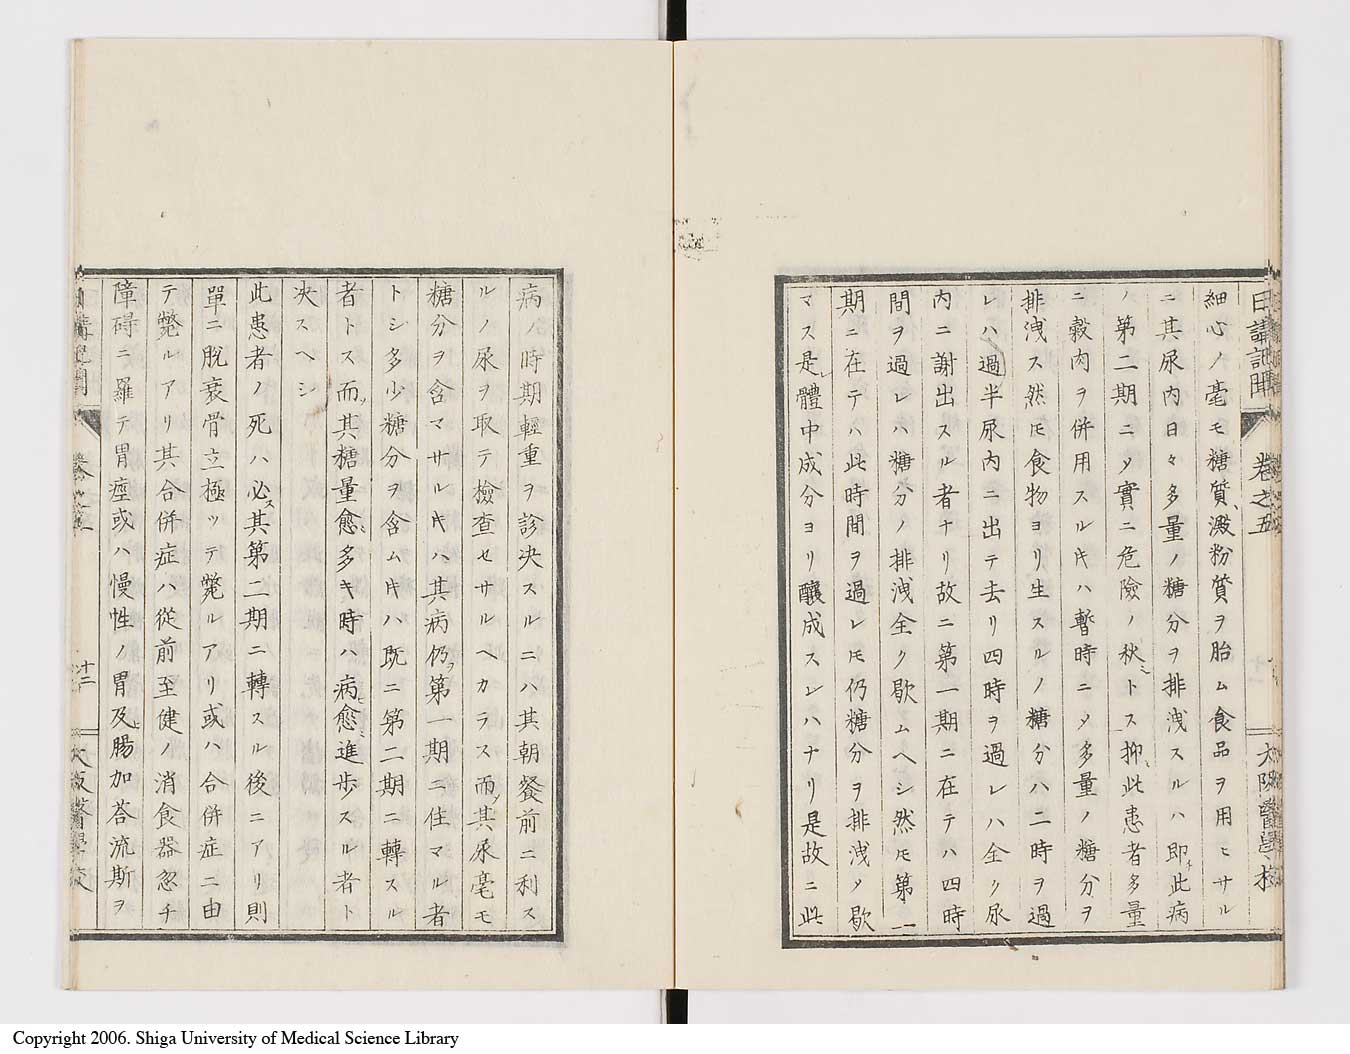 日講記聞 卷之五 大阪醫學校
細心ノ毫モ糖質澱粉質ヲ胎ム食品ヲ用ヒサル
ニ其尿内日々多量ノ糖分ヲ排洩スルハ即チ此病
ノ第二期ニメ實ニ危險ノ秋トス抑此患者多量
ニ穀肉ヲ併用スルキハ暫時ニメ多量ノ糖分ヲ
排洩ス然モ食物ヨリ生スルノ糖分ハ二時ヲ過
レハ過半尿内ニ出テ去リ四時ヲ過レハ全ク尿
内ニ謝出スル者ナリ故ニ第一期ニ在テハ四時
間ヲ過レハ糖分ノ排洩全ク歇ムヘシ然モ第二
期ニ在テハ此時間ヲ過レモ仍糖分ヲ排洩メ歇
マス是レ體中成分ヨリ釀成スレハナリ是故ニ此
病ノ時期輕重ヲ診决スルニハ其朝餐前ニ利ス
ルノ尿ヲ取テ檢査セサルヘカラス而メ其尿毫モ
糖分ヲ含マサルキハ其病仍ヲ第一期ニ住マル者
トシ多少糖分ヲ含ムキハ既ニ第二期ニ轉スル
者トス而メ其糖量愈多キ時ハ病愈進歩スル者ト
决スヘシ
此患者ノ死ハ必ス其第二期ニ轉スル後ニアリ則
單ニ脱衰骨立極ッテ斃ルアリ或ハ合併症ニ由
テ斃ルアリ其合併症ハ從前至健ノ消食器忽チ
障碍ニ羅テ胃痙或ハ慢性ノ胃及ヒ腸加荅流斯ヲ
十二
大阪醫學校
Copyright 2006. Shiga University of Medical Science Library